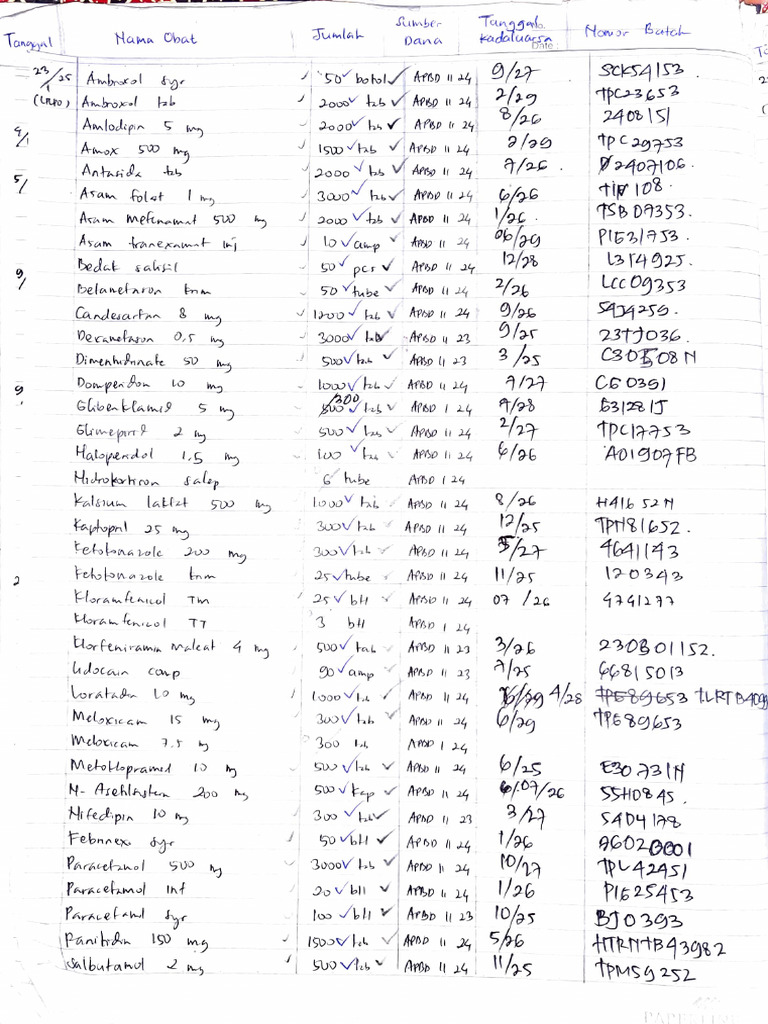 Tanggal Nama Obat Jumlah Sumber Dana Tanggal Kadaluarsa Nomor Batch
Date
23/1/25 Ambroxol syr 50 botol APBD II 24 9/27 SCK54153
Ambroxol tab 2000 tab APBD II 24 2/29 TPC23653
Amlodipin 5 mg 2000 tab APBD II 24 8/26 2408151
Amox 500 mg 1500 tab APBD II 24 2/29 TPC29753
Antasida tab 2000 tab APBD II 24 7/26 2407106
Asam folat 1 mg 3000 tab APBD II 24 6/26
Asam mefenamat 500 mg 2000 tab APBD II 24 1/26 TSB07353
Asam tranexamat inj 10 amp APBD II 24 06/29 P1E31753
Bedak salisil 50 pcs APBD II 24 12/28 L3T4925
Betametason krim 50 tube APBD II 24 2/26 LCC09353
Candesartan 8 mg 1200 tab APBD II 24 9/26
Dexametason 0,5 mg 3000 tab APBD II 23 9/25 23TJ036
Dimenhidrinate 50 mg 500 tab APBD II 23 3/25 C30508N
Domperidon 10 mg 1000 tab APBD II 24 7/27 CE0351
Glibenklamid 5 mg 300 tab APBD I 24 7/28 E3128IJ
Glimepirid 2 mg 500 tab APBD II 24 2/27 TPC17753
Haloperidol 1,5 mg 100 tab APBD II 24 6/26 A01907FB
Hidrokortison salep 6 tube APBD I 24
Kalsium laktat 500 mg 1000 tab APBD II 24 8/26 H41652N
Kaptopril 25 mg 300 tab APBD II 24 12/25 TPH81652
Ketokonazole 200 mg 300 tab APBD II 24 5/27 4641143
Ketokonazole krim 25 tube APBD II 24 11/25 120343
Kloramfenicol TM 25 btl APBD II 24 07/26 4741277
Kloramfenicol TT 3 btl APBD I 24
Klorfeniramin maleat 4 mg 500 tab APBD II 23 3/26 230B01152
Lidocain comp 90 amp APBD II 23 7/25 66815013
Loratadin 10 mg 1000 tab APBD II 24 4/28 TPE89653
Meloxicam 15 mg 300 tab APBD II 24 6/29 TPE89653
Meloxicam 7,5 mg 300 tab APBD I 24
Metoklopramid 10 mg 500 tab APBD II 24 6/25 E30731N
N-Asetilsistein 200 mg 500 kap APBD II 24 07/26 55H0845
Nifedipin 10 mg 300 tab APBD II 23 3/27 5404178
Febrinex syr 50 btl APBD II 24 1/26 26020001
Paracetamol 500 mg 3000 tab APBD II 24 10/27 TPL42451
Paracetamol inf 20 btl APBD II 24 1/26 P1625453
Paracetamol syr 100 btl APBD II 23 10/25 BJ0393
Ranitidin 150 mg 1500 tab APBD II 24 5/26 HTRNTB43982
Salbutamol 2 mg 500 tab APBD II 24 11/25 TPM59252